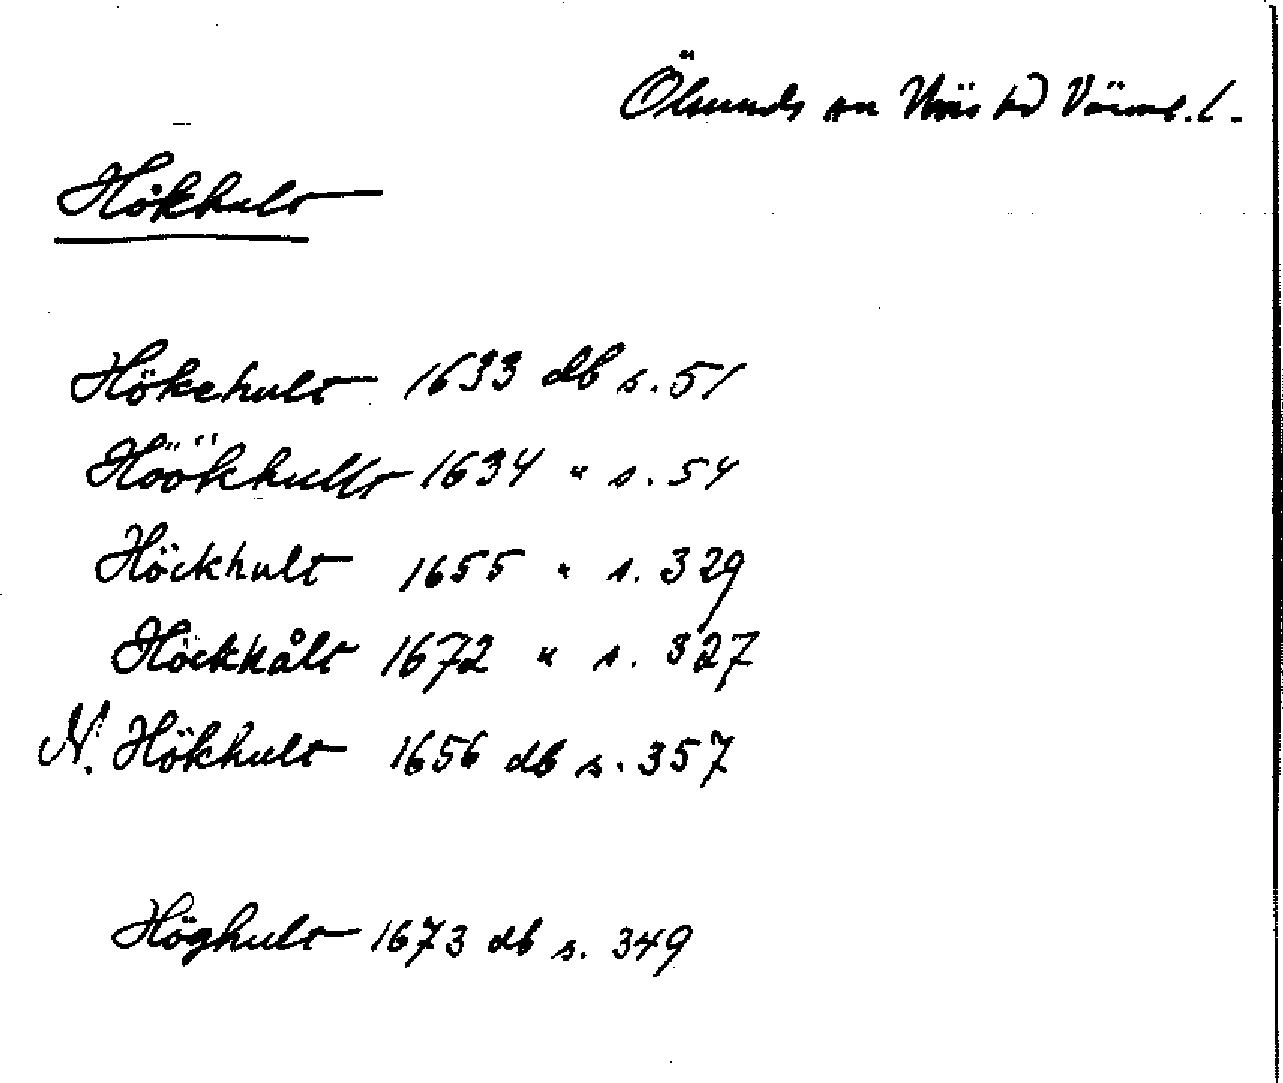 Ölseruds sn Näs hd Värml. l.
Hökhult
Hökehult 1633 db s. 51
Höökhullt 1634 " s. 54
Höckhult 1655 " s. 329
Höckhålt 1672 " s. 327
N. Hökhult 1656 db s. 357
Höghult 1673 db s. 349